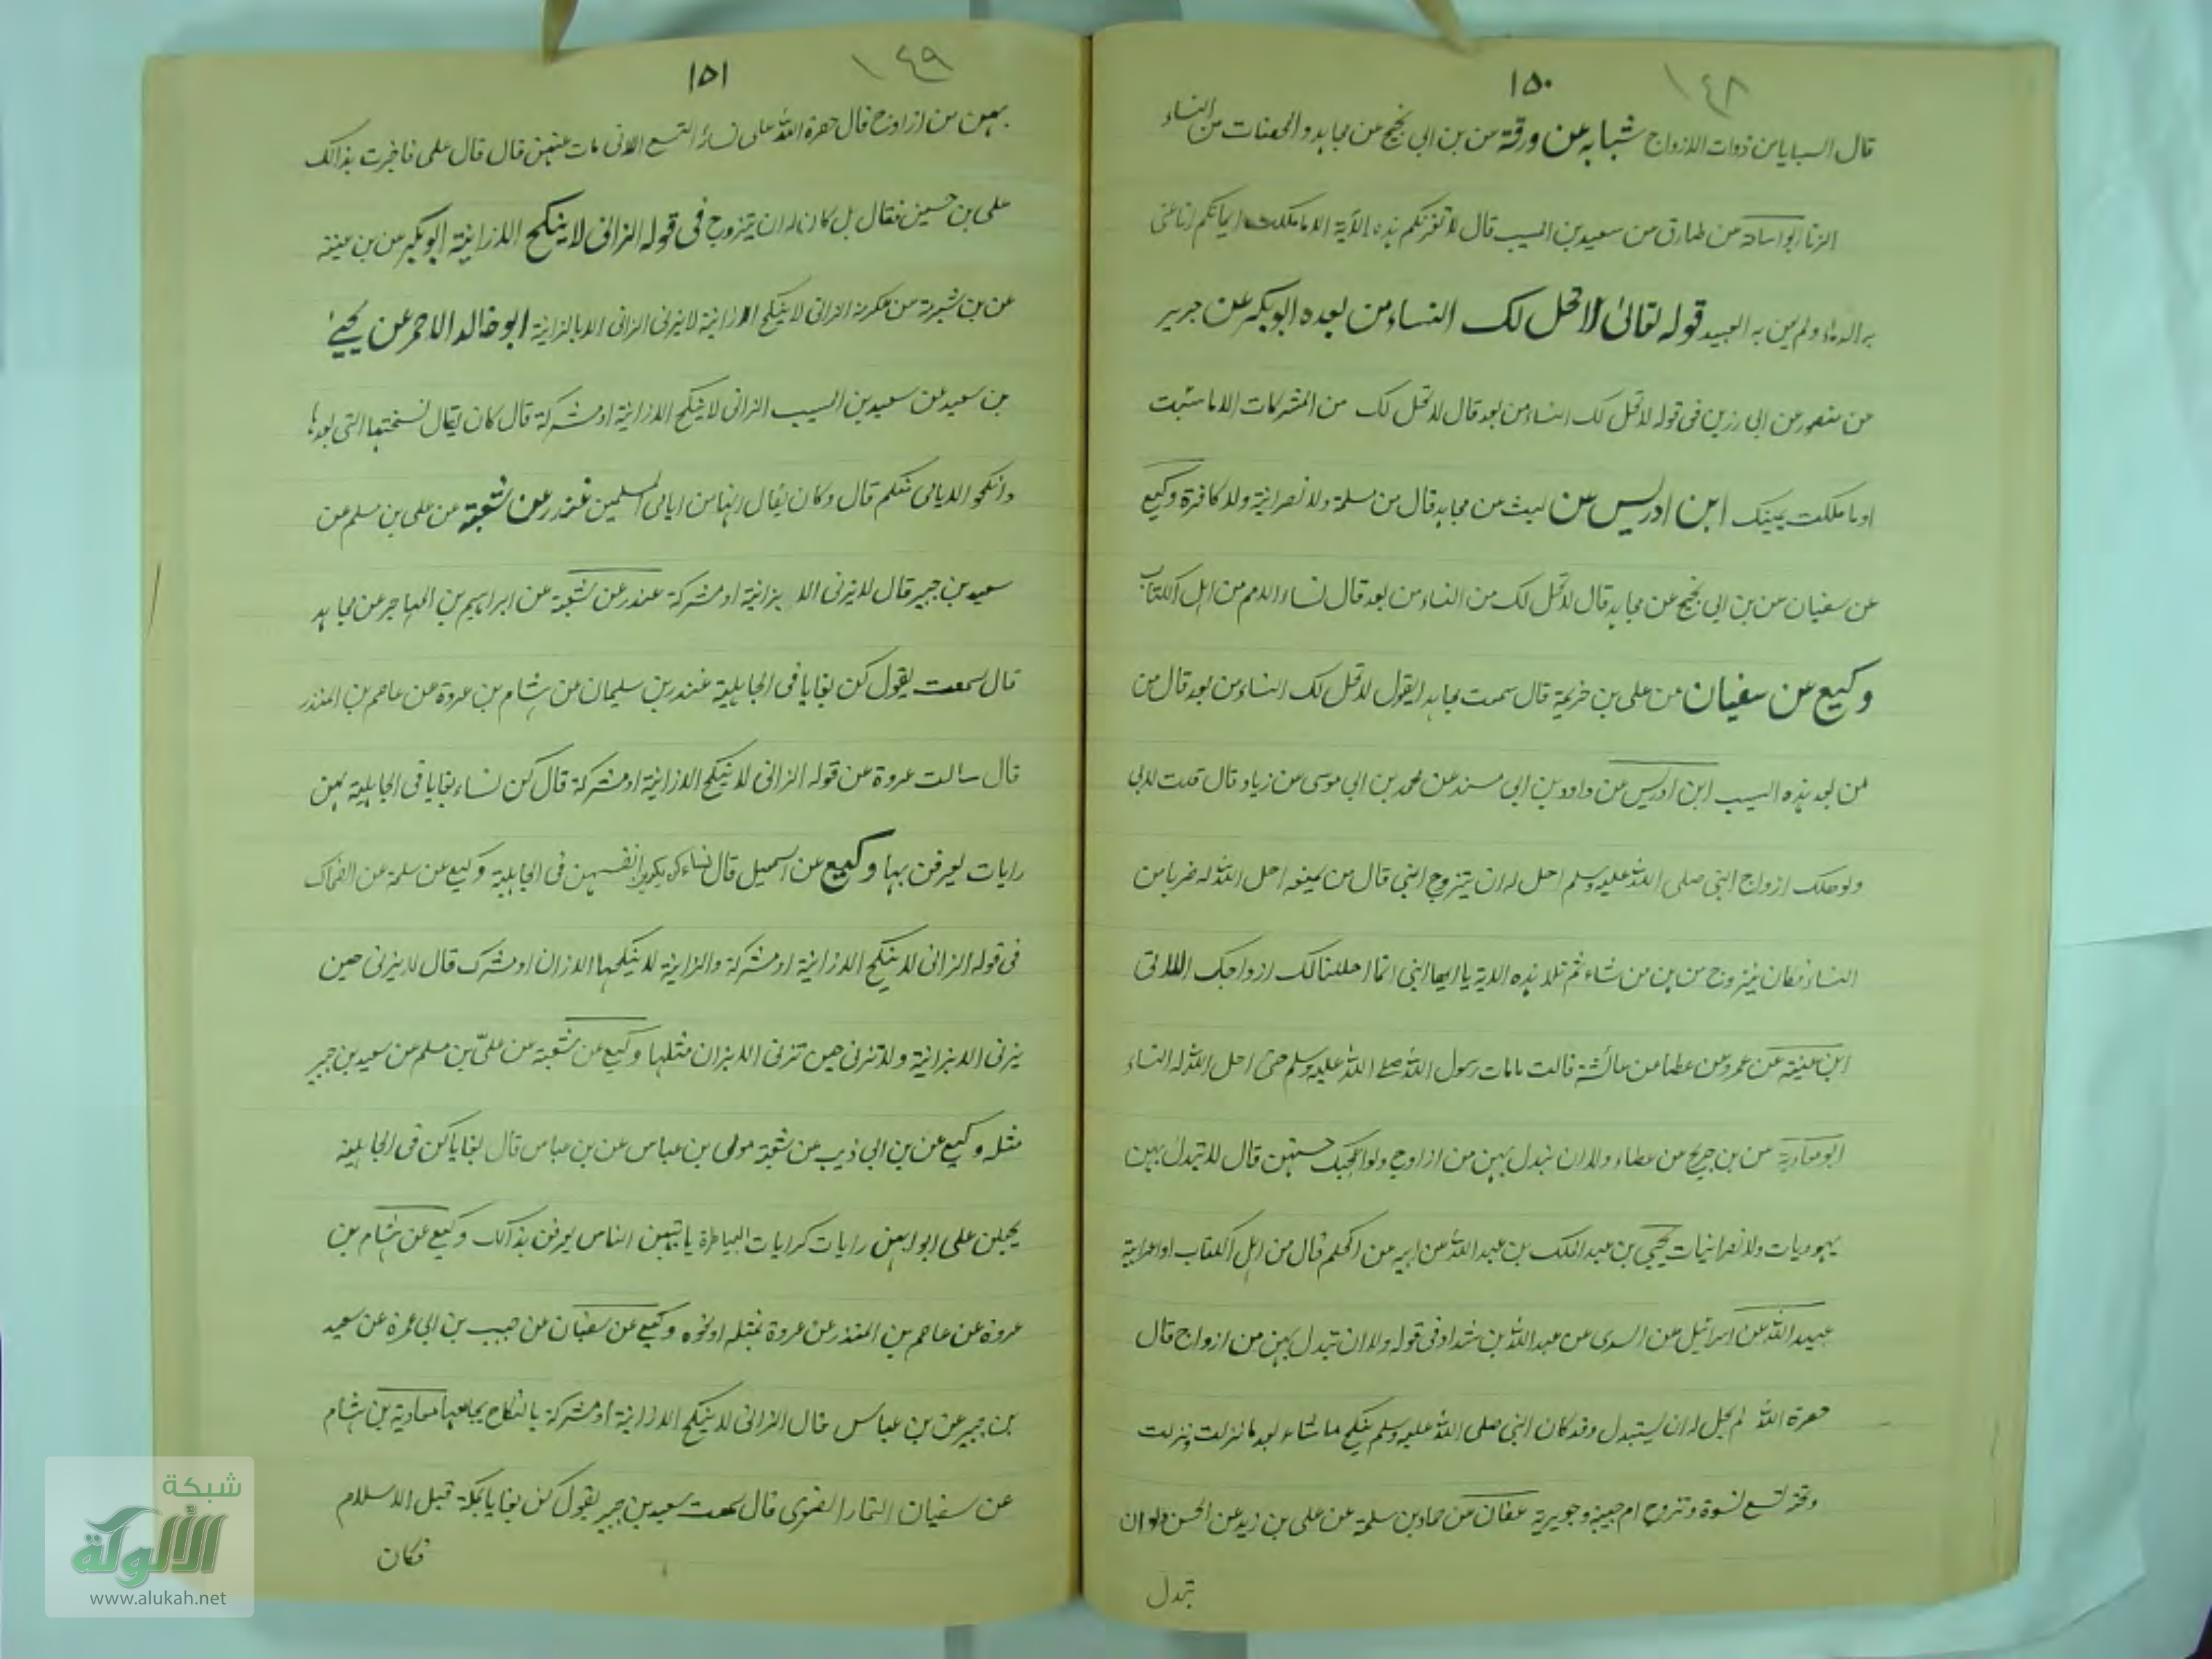 ١٤٨
١٥٠
قال السبايا من ذوات الازواج شبابه عن ورقة عن بن ابي نجيح عن مجاهد والمحصنات من النساء
الزنا ابو اسامة عن طارق عن سعيد بن المسيب قال لا تغرنكم هذه الآية الا ما ملكت ايمانكم انما عنى
به الاماء ولم يعن به العبيد قوله تعالىٰ لا تحل لك النساء من بعده ابو بكر عن جرير
عن منصور عن ابي رزين في قوله لا تحل لك النساء من بعد قال لا تحل لك من المشركات الا ما سبيت
او ما ملكت يمينك ابن ادريس عن ليث عن مجاهد قال من مسلمة ولا نصرانية ولا كافرة وكيع
عن سفيان عن بن ابي نجيح عن مجاهد قال لا تحل لك من النساء من بعد قال نساء الامم من اهل الكتاب
وكيع عن سفيان عن على بن خزيمة قال سمعت مجاهد ايقول لا تحل لك النساء من بعد قال من
من بعد هذه السبب ابن ادريس عن داود بن ابي مسند عن محمد بن ابي موسى عن زياد قال قلت لابي
ولو هلك ازواج النبي صلى الله عليه وسلم احل له ان يتزوج النبي قال من يمنعه احل الله له ضربا من
النساء فكان يتزوج من بن من شاء ثم تلا هذه الاية يا ايها النبي انا احللنا لك ازواجك اللاتى
ابن عينة عن عمرو عن عطا عن عائشة قالت ما مات رسول الله صلے الله عليه وسلم حتى احل الله له النساء
ابو معاوية عن بن جريج عن عطاء ولا ان تبدل بهن من ازواج ولو اعجبك حسنهن قال لا تبدل بهن
يهوديات ولا نصرانيات يحيى بن عبد الملك بن عبد الله عن ابيه عن الحكم قال من اهل الكتاب او اعرابية
عبيد الله عن اسرائيل عن السدى عن عبد الله بن شداد في قوله ولا ان تبدل بهن من ازواج قال
حصره الله لم يحل له ان يستبدل وقد كان النبي صلى الله عليه وسلم ينكح ما شاء بعد ما نزلت ونزلت
وتحته تسع نسوة وتزوج ام حبيبة وجويرية عفان عن حماد بن سلمة عن على بن زيد عن الحسن ولا ان
تبدل
١٤٩
١٥١
بهن من ازواج قال حصره الله على نسائه التسع الاتى مات عنهن قال قال على فاخبرت بذالك
على بن حسين فقال بل كان له ان يتزوج في قوله الزانى لا ينكح الا زانية ابو بكر عن بن عينة
عن بن شبرمة عن عكرمة الزانى لا ينكح الا زانية لا يزنى الزانى الا بالزانية ابو خالد الاحمر عن يحيىٰ
بن سعيد عن سعيد بن المسيب الزانى لا ينكح الا زانية او مشركة قال كان يقال نسختها التى بعدها
وانكحوا الايامى منكم قال وكان يقال انها من ايامى المسلمين غندر عن شعبة عن على بن مسلم عن
سعيد بن جبير قال لا يزنى الا بزانية او مشركة غندر عن شعبة عن ابراهيم بن المهاجر عن مجاهد
قال سمعت يقول كن بغايا في الجاهلية عبد بن سليمان عن هشام بن عروة عن عاصم بن المنذر
قال سالت عروة عن قوله الزانى لا ينكح الا زانية او مشركة قال كن نساء بغايا في الجاهلية لهن
رايات يعرفن بها وكيع عن اسمعيل قال نساء كن يكرين انفسهن في الجاهلية وكيع عن سلمة عن الضحاك
في قوله الزانى لا ينكح الا زانية او مشركة والزانية لا ينكحها الا زان او مشرك قال لا يزنى حين
يزنى الا بزانية ولا تزنى حين تزنى الا بزان مثلها وكيع عن شعبة عن علىّ بن مسلم عن سعيد بن جبير
مثله وكيع عن بن ابي ذيب عن شعبة مولى بن عباس عن بن عباس قال بغايا كن في الجاهلية
يجعلن على ابوابهن رايات كرايات البياطرة ياتيهن الناس يعرفن بذالك وكيع عن هشام بن
عروة عن عاصم بن المنذر عن عروة بمثله او نحوه وكيع عن سفيان عن حبيب بن ابي عمرة عن سعيد
بن جبير عن بن عباس قال الزانى لا ينكح الا زانية او مشركة بالنكاح يجامعها معاوية بن هشام
عن سفيان التمار العصفرى قال سمعت سعيد بن جبير يقول كن بغايا بمكة قبل الاسلام
فكان
شبكة
الألوكة
www.alukah.net